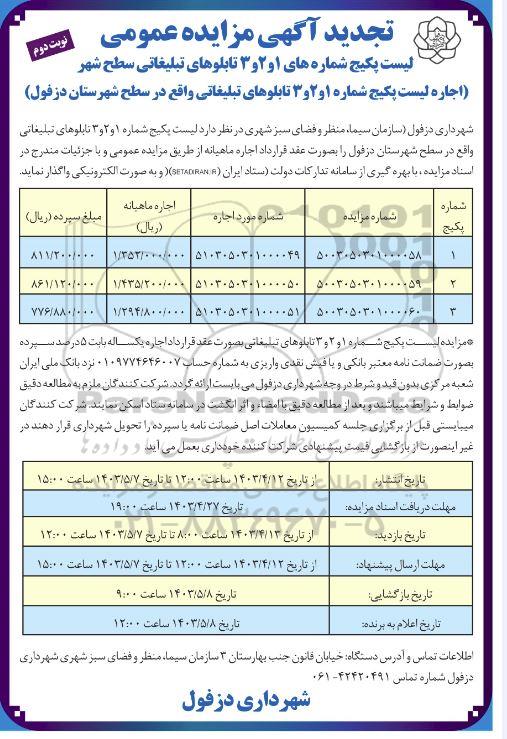 تجدید آگهی مزایده عمومی
نوبت دوم
لیست پکیج شماره های ۱و۲و۳ تابلوهای تبلیغاتی سطح شهر
(اجاره لیست پکیج شماره ۱و۲و۳ تابلوهای تبلیغاتی واقع در سطح شهرستان دزفول)
شهرداری دزفول (سازمان سیما، منظر و فضای سبز شهری در نظر دارد لیست پکیج شماره ۱و۲و۳ تابلوهای تبلیغاتی
واقع در سطح شهرستان دزفول را بصورت عقد قرارداد اجاره ماهیانه از طریق مزایده عمومی و با جزئیات مندرج در
اسناد مزایده ، با بهره گیری از سامانه تدارکات دولت (ستاد ایران (SETADIRAN.IR)( و به صورت الکترونیکی واگذار نماید.
شماره پکیج شماره مزایده شماره مورد اجاره اجاره ماهیانه (ریال) مبلغ سپرده (ریال)
۱ ۵۰۰۳۰۵۰۳۰۱۰۰۰۰۵۸ ۵۱۰۳۰۵۰۳۰۱۰۰۰۰۴۹ ۱/۳۵۲/۰۰۰/۰۰۰ ۸۱۱/۲۰۰/۰۰۰
۲ ۵۰۰۳۰۵۰۳۰۱۰۰۰۰۵۹ ۵۱۰۳۰۵۰۳۰۱۰۰۰۰۵۰ ۱/۴۳۵/۲۰۰/۰۰۰ ۸۶۱/۱۲۰/۰۰۰
۳ ۵۰۰۳۰۵۰۳۰۱۰۰۰۰۶۰ ۵۱۰۳۰۵۰۳۰۱۰۰۰۰۵۱ ۱/۲۹۴/۸۰۰/۰۰۰ ۷۷۶/۸۸۰/۰۰۰
*مزایده لیست پکیج شماره ۱و۲و۳ تابلوهای تبلیغاتی بصورت عقد قرارداد اجاره یکساله بابت ۵ درصد سپرده
بصورت ضمانت نامه معتبر بانکی و یا فیش نقدی واریزی به شماره حساب ۰۱۰۹۷۷۴۶۴۶۰۰۷ نزد بانک ملی ایران
شعبه مرکزی بدون قید و شرط در وجه شهرداری دزفول می بایست ارائه گردد. شرکت کنندگان ملزم به مطالعه دقیق
ضوابط و شرایط میباشند و بعد از مطالعه دقیق با امضاء و اثر انگشت در سامانه ستاد اسکن نمایند. شرکت کنندگان
میبایستی قبل از برگزاری جلسه کمیسیون معاملات اصل ضمانت نامه یا سپرده را تحویل شهرداری قرار دهند در
غیر اینصورت از بازگشایی قیمت پیشنهادی شرکت کننده خودداری بعمل می آید.
تاریخ انتشار: از تاریخ ۱۴۰۳/۴/۱۲ ساعت ۱۲:۰۰ تا تاریخ ۱۴۰۳/۵/۷ ساعت ۱۵:۰۰
مهلت دریافت اسناد مزایده: تاریخ ۱۴۰۳/۴/۲۷ ساعت ۱۹:۰۰
تاریخ بازدید: از تاریخ ۱۴۰۳/۴/۱۳ ساعت ۸:۰۰ تا تاریخ ۱۴۰۳/۵/۷ ساعت ۱۲:۰۰
مهلت ارسال پیشنهاد: از تاریخ ۱۴۰۳/۴/۱۲ ساعت ۱۲:۰۰ تا تاریخ ۱۴۰۳/۵/۷ ساعت ۱۵:۰۰
تاریخ بازگشایی: تاریخ ۱۴۰۳/۵/۸ ساعت ۹:۰۰
تاریخ اعلام به برنده: تاریخ ۱۴۰۳/۵/۸ ساعت ۱۲:۰۰
اطلاعات تماس و آدرس دستگاه: خیابان قانون جنب بهارستان ۳ سازمان سیما، منظر و فضای سبز شهری شهرداری
دزفول شماره تماس ۴۲۴۲۰۴۹۱-۰۶۱
شهرداری دزفول